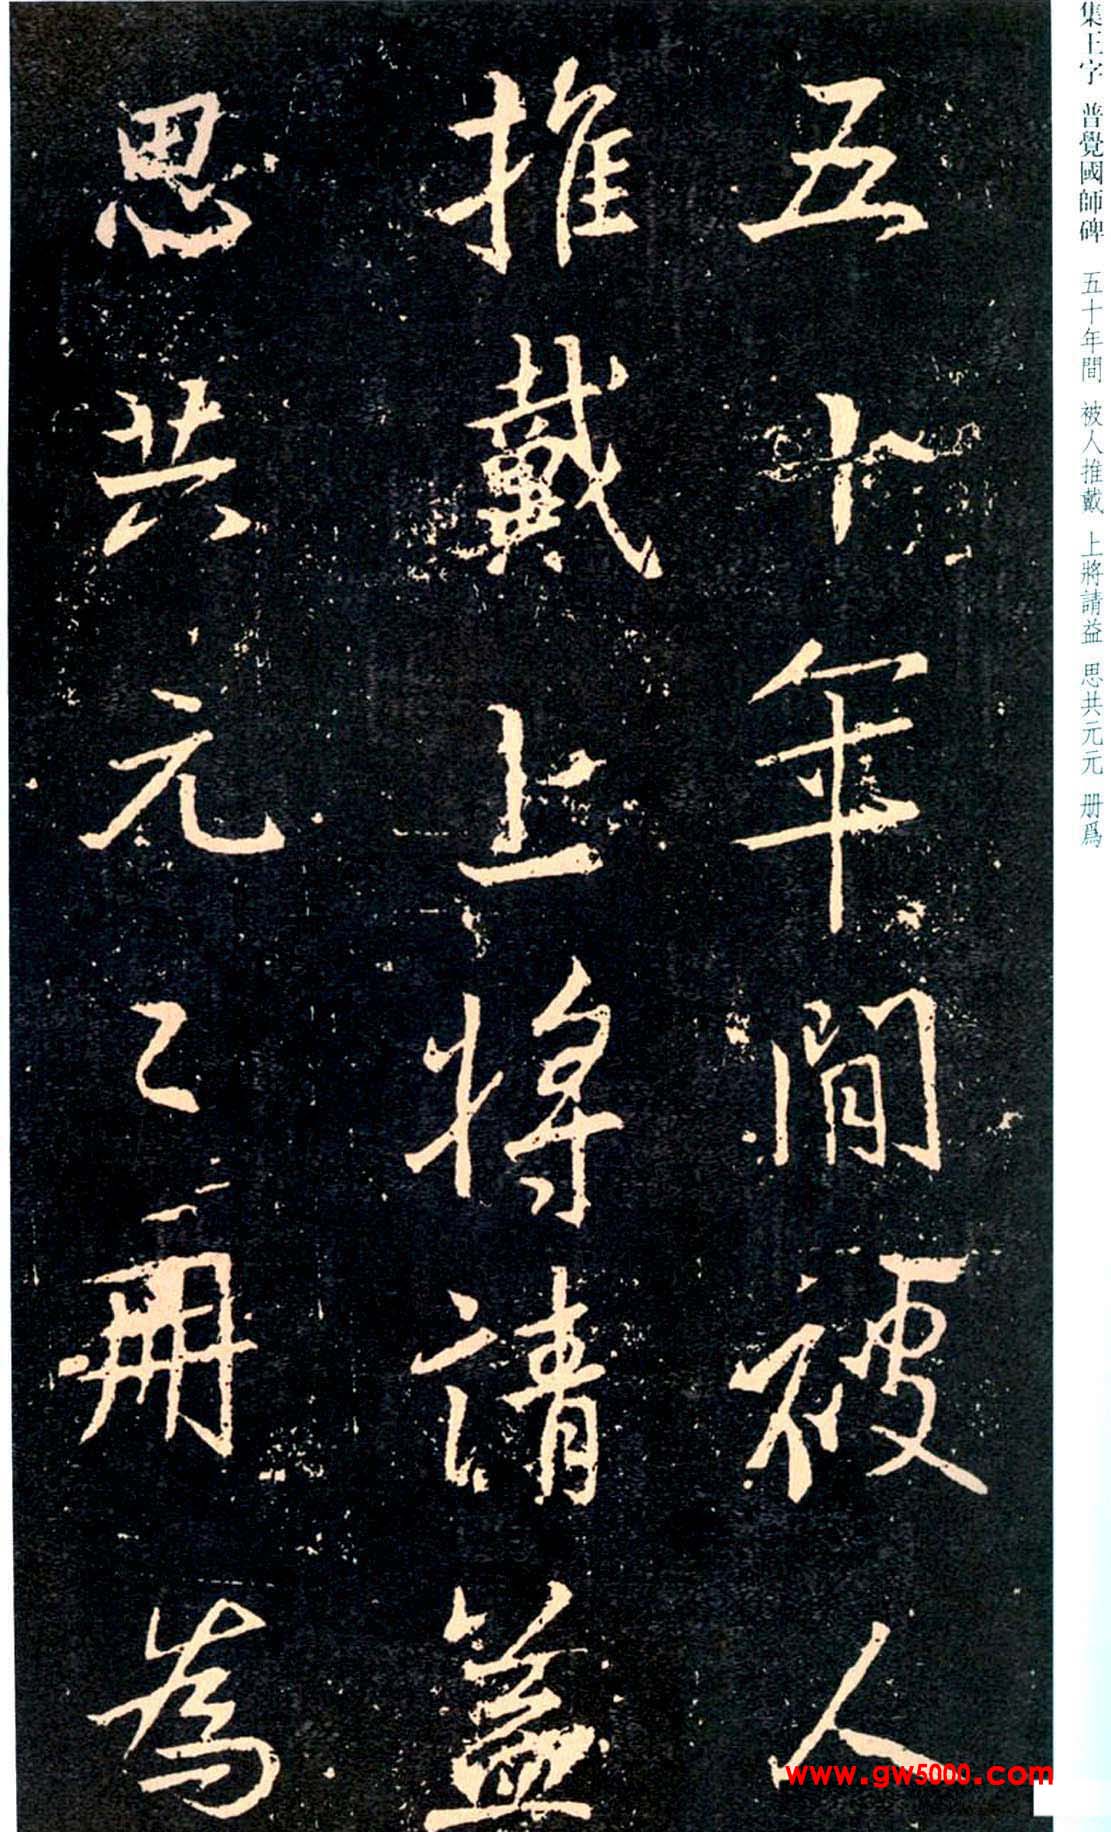 集王字 普覺國師碑 五十年間 被人推戴 上將請益 思共元元 册爲
五十年間被人
推戴上將請益
思共元〻冊為
www.gw5000.com